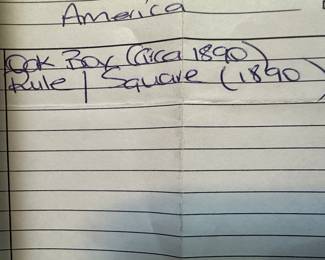 America
Oak Box (Circa 1890)
Rule | Square (1890)